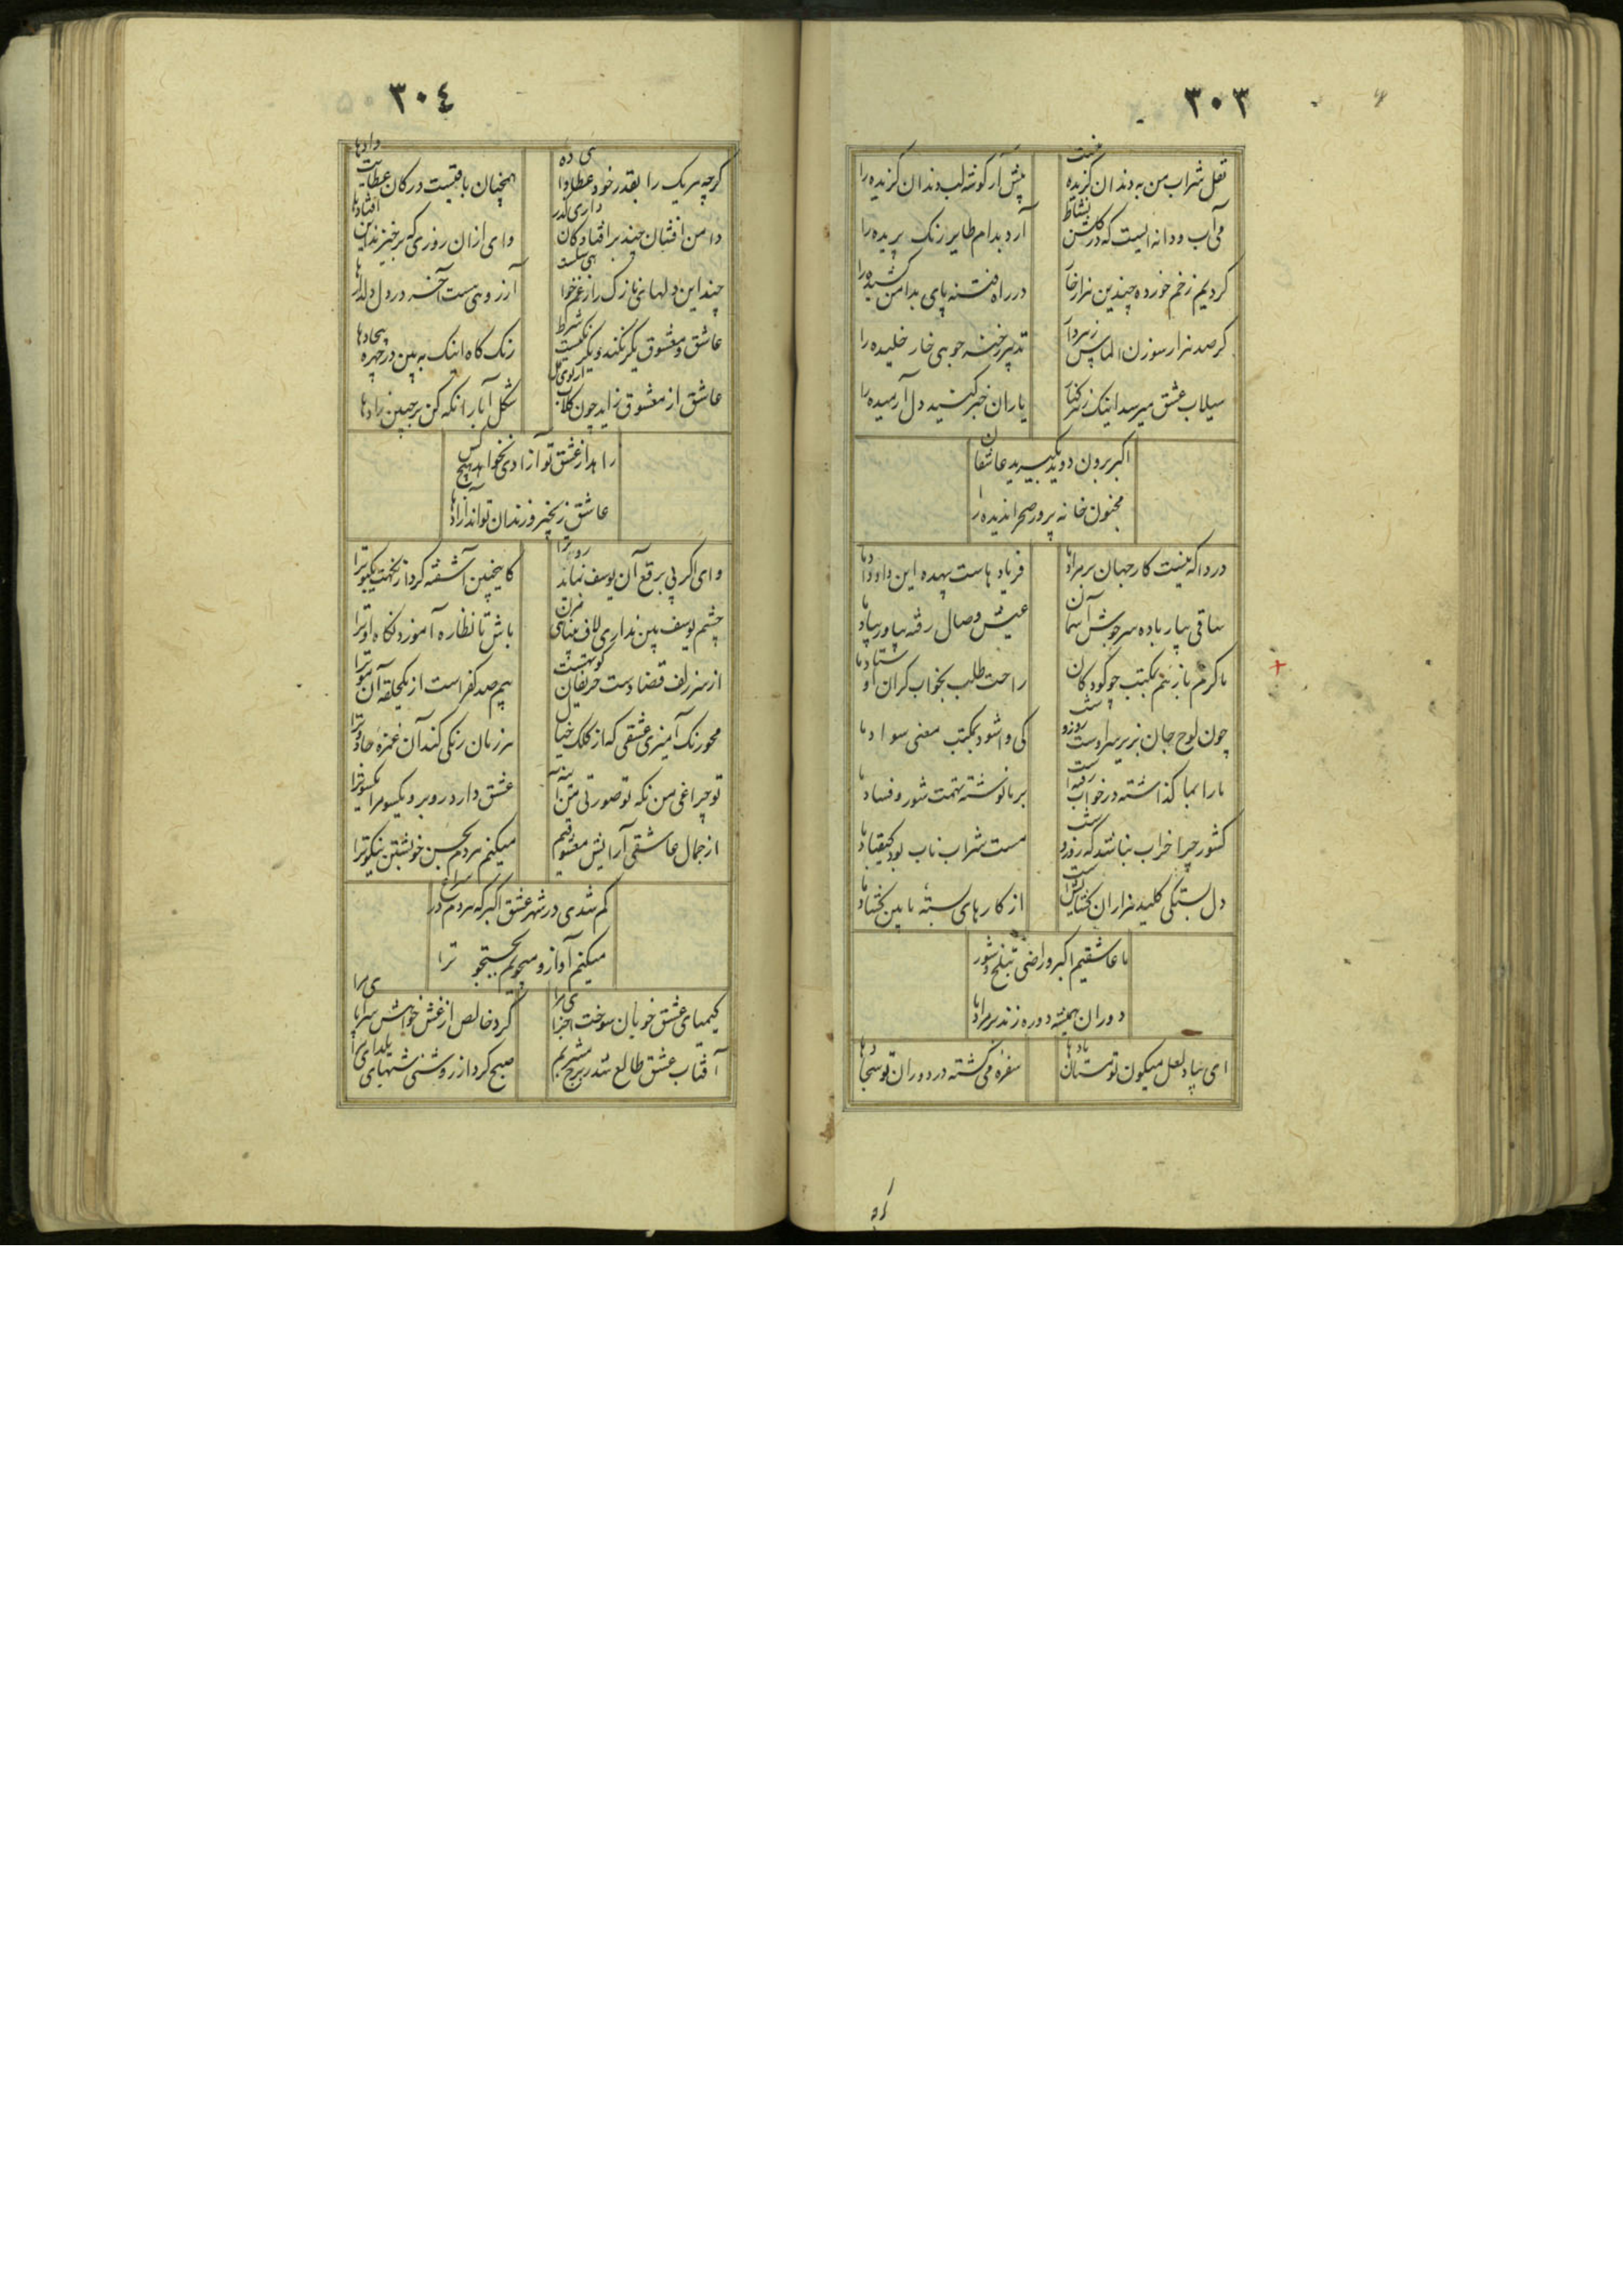 ۳۰۳
نقل شراب من به دندان گزیده نیست پیش آر گوشه لب دندان گزیده را
می آب و دانه ایست که در گلشن نشاط آرد بدام طایر رنگ پریده را
کردیم زخم خورده چندین هزار خار در راه فتنه پای بدامن کشیده را
گر صد هزار سوزن الماس تدبیر خنه جویی خار خلیده را
سیلاب عشق میرسد اینک ز هر کنار یاران خبر کنید دل آرمیده را
اکبر برون دوید بگیرید عاشقان
مجنون خانه پرور صحرا ندیده را
دردا که نیست کار جهان بر مراد ما فریاد هاست بیهده این داد داد ما
ساقی بیار باده سرجوش آسمان عیش وصال رفته بیاور بیاد ما
ما گرم بازییم بمکتب چو کودکان راحت طلب بخواب گران اوستاد ما
چون لوح جان بزیر سر اوست روز و شب کی وا شود بمکتب معنی سواد ما
ما را بما گذاشته در خواب رفته است بر ما نوشته تهمت شور و فساد ما
کشور چرا خراب نباشد که روز و شب مست شراب ناب بود کیقباد ما
دل بستگی کلید هزاران گشایش است از کارهای بسته ما بین گشاد ما
ما عاشقیم اکبر و راضی بتلخ و شور
دوران همیشه دوره زند بر مراد ما
ای بیاد لعل میگون تو مستان باده ها سفره می گشته در دوران تو سجاده ها
گرچه
۳۰۴
گرچه هر یک را بقدر خود عطا داده همچنان باقیست در کان عطایت داده ها
دامن افشان چند بر افتادگان داری گذر وای ازان روزی که برخیزند این افتاده ها
چند این دلهای نازک را ز غم خواهی شکست آرزوهی هست آخر در دل دلداده ها
عاشق و معشوق یکرنگند و یکرنگیست شرط رنگ کاه اینک به بین در چهره بیجاده ها
عاشق از معشوق زاید چون گلاب از روی گل شکل آبا را نگه کن بر جبین زاده ها
زاهد از عشق تو آزادی نخواهد هیچکس
عاشق زنجیر و زندان تواند آزاده ها
وای اگر بی برقع آن یوسف نماید رو ترا کاینچنین آشفته کرد از نکهت گیسو ترا
چشم یوسف بین نداری لاف بینایی مزن باش تا نظاره آموزد نگاه او ترا
از سر زلف قضا دست حریفان کوته است بیم صد کفر است از یکحلقه آن مو ترا
محو رنگ آمیزی عشقی که از کلک خیال هر زمان رنگی کند آن غمزه جادو ترا
تو چراغی من نگه تو صورتی من آینه عشق دارد روبرو یکسو مرا یکسو ترا
از جمال عاشقی آرایش معشوقیم میکنم هر دم بحسن خویشتن نیکو ترا
گم شدی در شهر عشق اکبر که هر دم در سراغ
میکنم آواز و میجویم بجستجو ترا
کیمیای عشق خوبان سوخت اجزای مرا کرد خالص از غش خواهش سراپای مرا
آفتاب عشق طالع شد ز برج مشربم صبح کرد از روشنی شبهای یلدای مرا